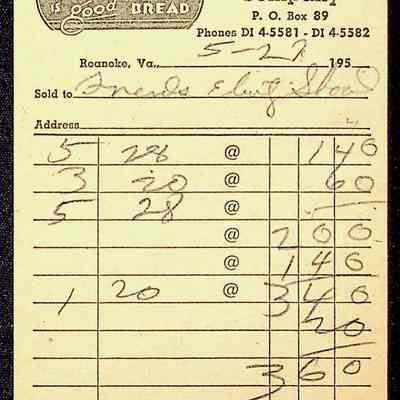 is good BREAD
Company
P. O. Box 89
Phones DI 4-5581 - DI 4-5582
5-27
Roanoke, Va., 195
Sold to
Address
5 28 @ 1 40
3 20 @ 60
5 28 @
@ 2 00
@ 1 40
1 20 @ 3 40
20
3 60